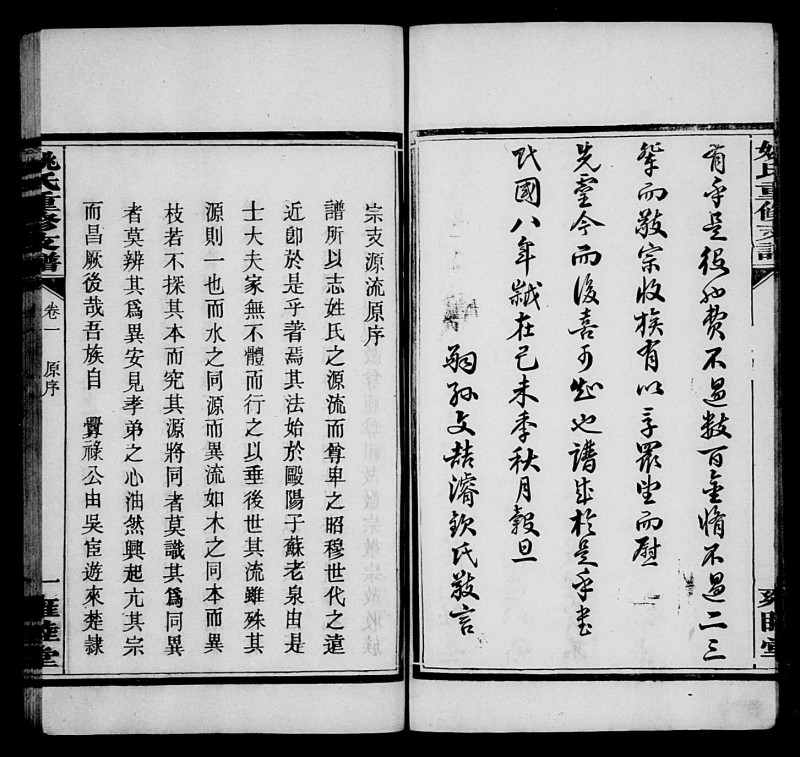 姚氏重修支譜
雍睦堂
有乎是役也費不過數百金脩不過二三
輩而敬宗收族有以孚眾望而慰
先靈今而後喜可知也譜成於是乎書
民國八年歲在己未季秋月穀旦
嗣孫文喆濬欽氏敬言
宗支源流原序
譜所以志姓氏之源流而尊卑之昭穆世代之遠
近卽於是乎著焉其法始於歐陽子蘇老泉由是
士大夫家無不體而行之以垂後世其流雖殊其
源則一也而水之同源而異流如木之同本而異
枝若不探其本而究其源將同者莫識其爲同異
者莫辨其爲異安見孝弟之心油然興起亢其宗
而昌厥後哉吾族自 釁祿公由吳宦遊來楚隷
姚氏重修支譜
卷一 原序
一 雍睦堂